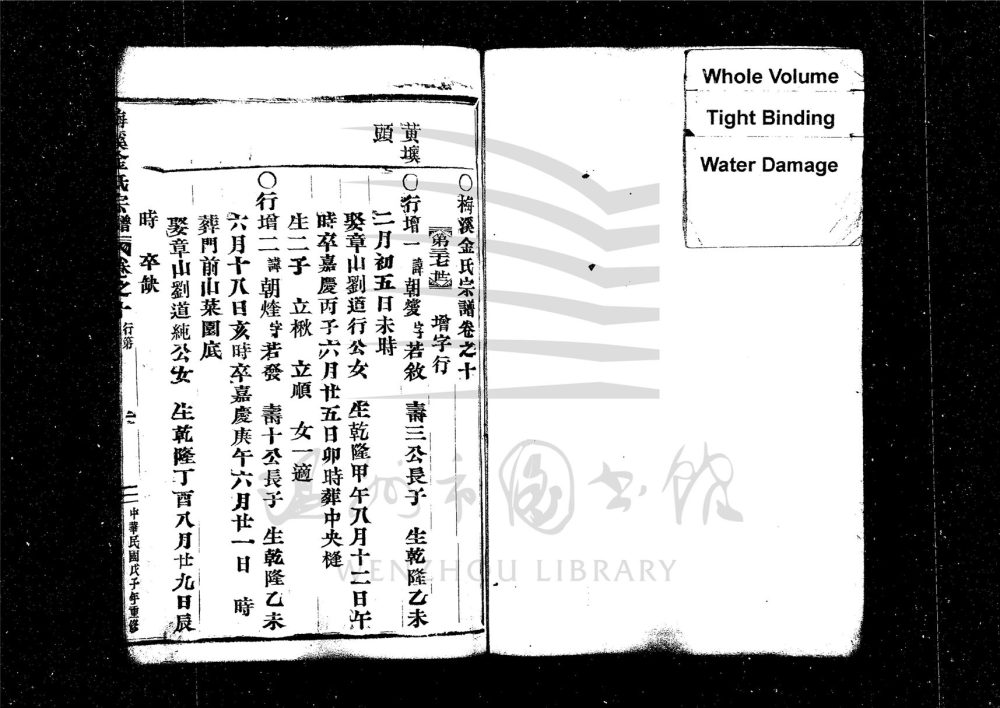 Whole Volume
Tight Binding
Water Damage
〇梅溪金氏宗譜卷之十
第三七世 增字行
黃壤頭
〇行增一 諱朝燮 字若敘 壽三公長子 生乾隆乙未
二月初五日未時
娶章山劉道行公女 生乾隆甲午八月十二日午
時卒嘉慶丙子六月廿五日卯時葬中央槰
生二子 立楸 立順 女一適
〇行增二 諱朝煃 字若發 壽十公長子 生乾隆乙未
六月十八日亥時卒嘉慶庚午六月廿一日 時
葬門前山菜園底
娶章山劉道純公女 生乾隆丁酉八月廿九日辰
時 卒缺
梅溪金氏宗譜 卷之十 行第 一
中華民國戊子年重修
温州市图书馆
WENZHOU LIBRARY